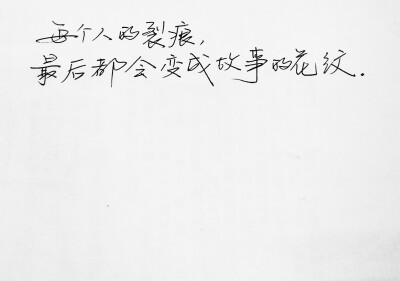 每个人的裂痕，
最后都会变成故事的花纹.